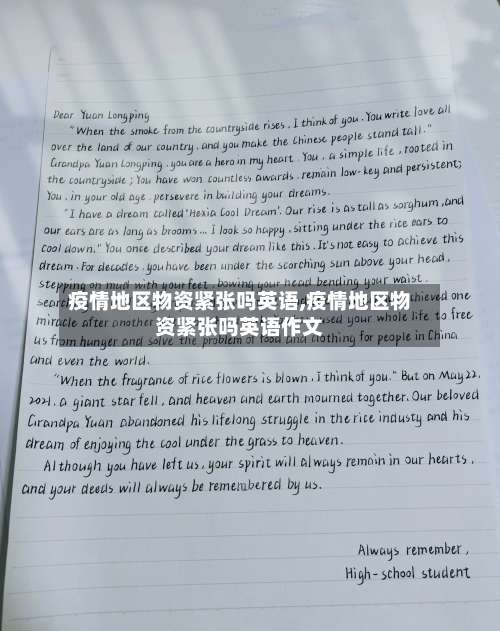 Dear Yuan Longping
"When the smoke from the countryside rises, I think of you. You write love all
over the land of our country, and you make the Chinese people stand tall."
Grandpa Yuan Longping, you are a hero in my heart. You, a simple life, rooted in
the countryside; You have won countless awards, remain low-key and persistent;
You, in your old age, persevere in building your dreams.
"I have a dream called 'Hexia Cool Dream'. Our rise is as tall as sorghum, and
our ears are as long as brooms... I look so happy, sitting under the rice ears to
cool down." You once described your dream like this. It's not easy to achieve this
dream. For decades, you have been under the scorching sun above your head,
stepping on mud with your feet, bowing your head bending your waist,
疫情地区物资紧张吗英语,疫情地区物
资紧张吗英语作文
miracle after another used your whole life to free
us from hunger and solve the problem of food and clothing for people in China
and even the world.
"When the fragrance of rice flowers is blown, I think of you." But on May 22,
2021, a giant star fell, and heaven and earth mourned together. Our beloved
Grandpa Yuan abandoned his lifelong struggle in the rice industy and his
dream of enjoying the cool under the grass to heaven.
Although you have left us, your spirit will always remain in our hearts,
and your deeds will always be remembered by us.
Always remember,
High-school student